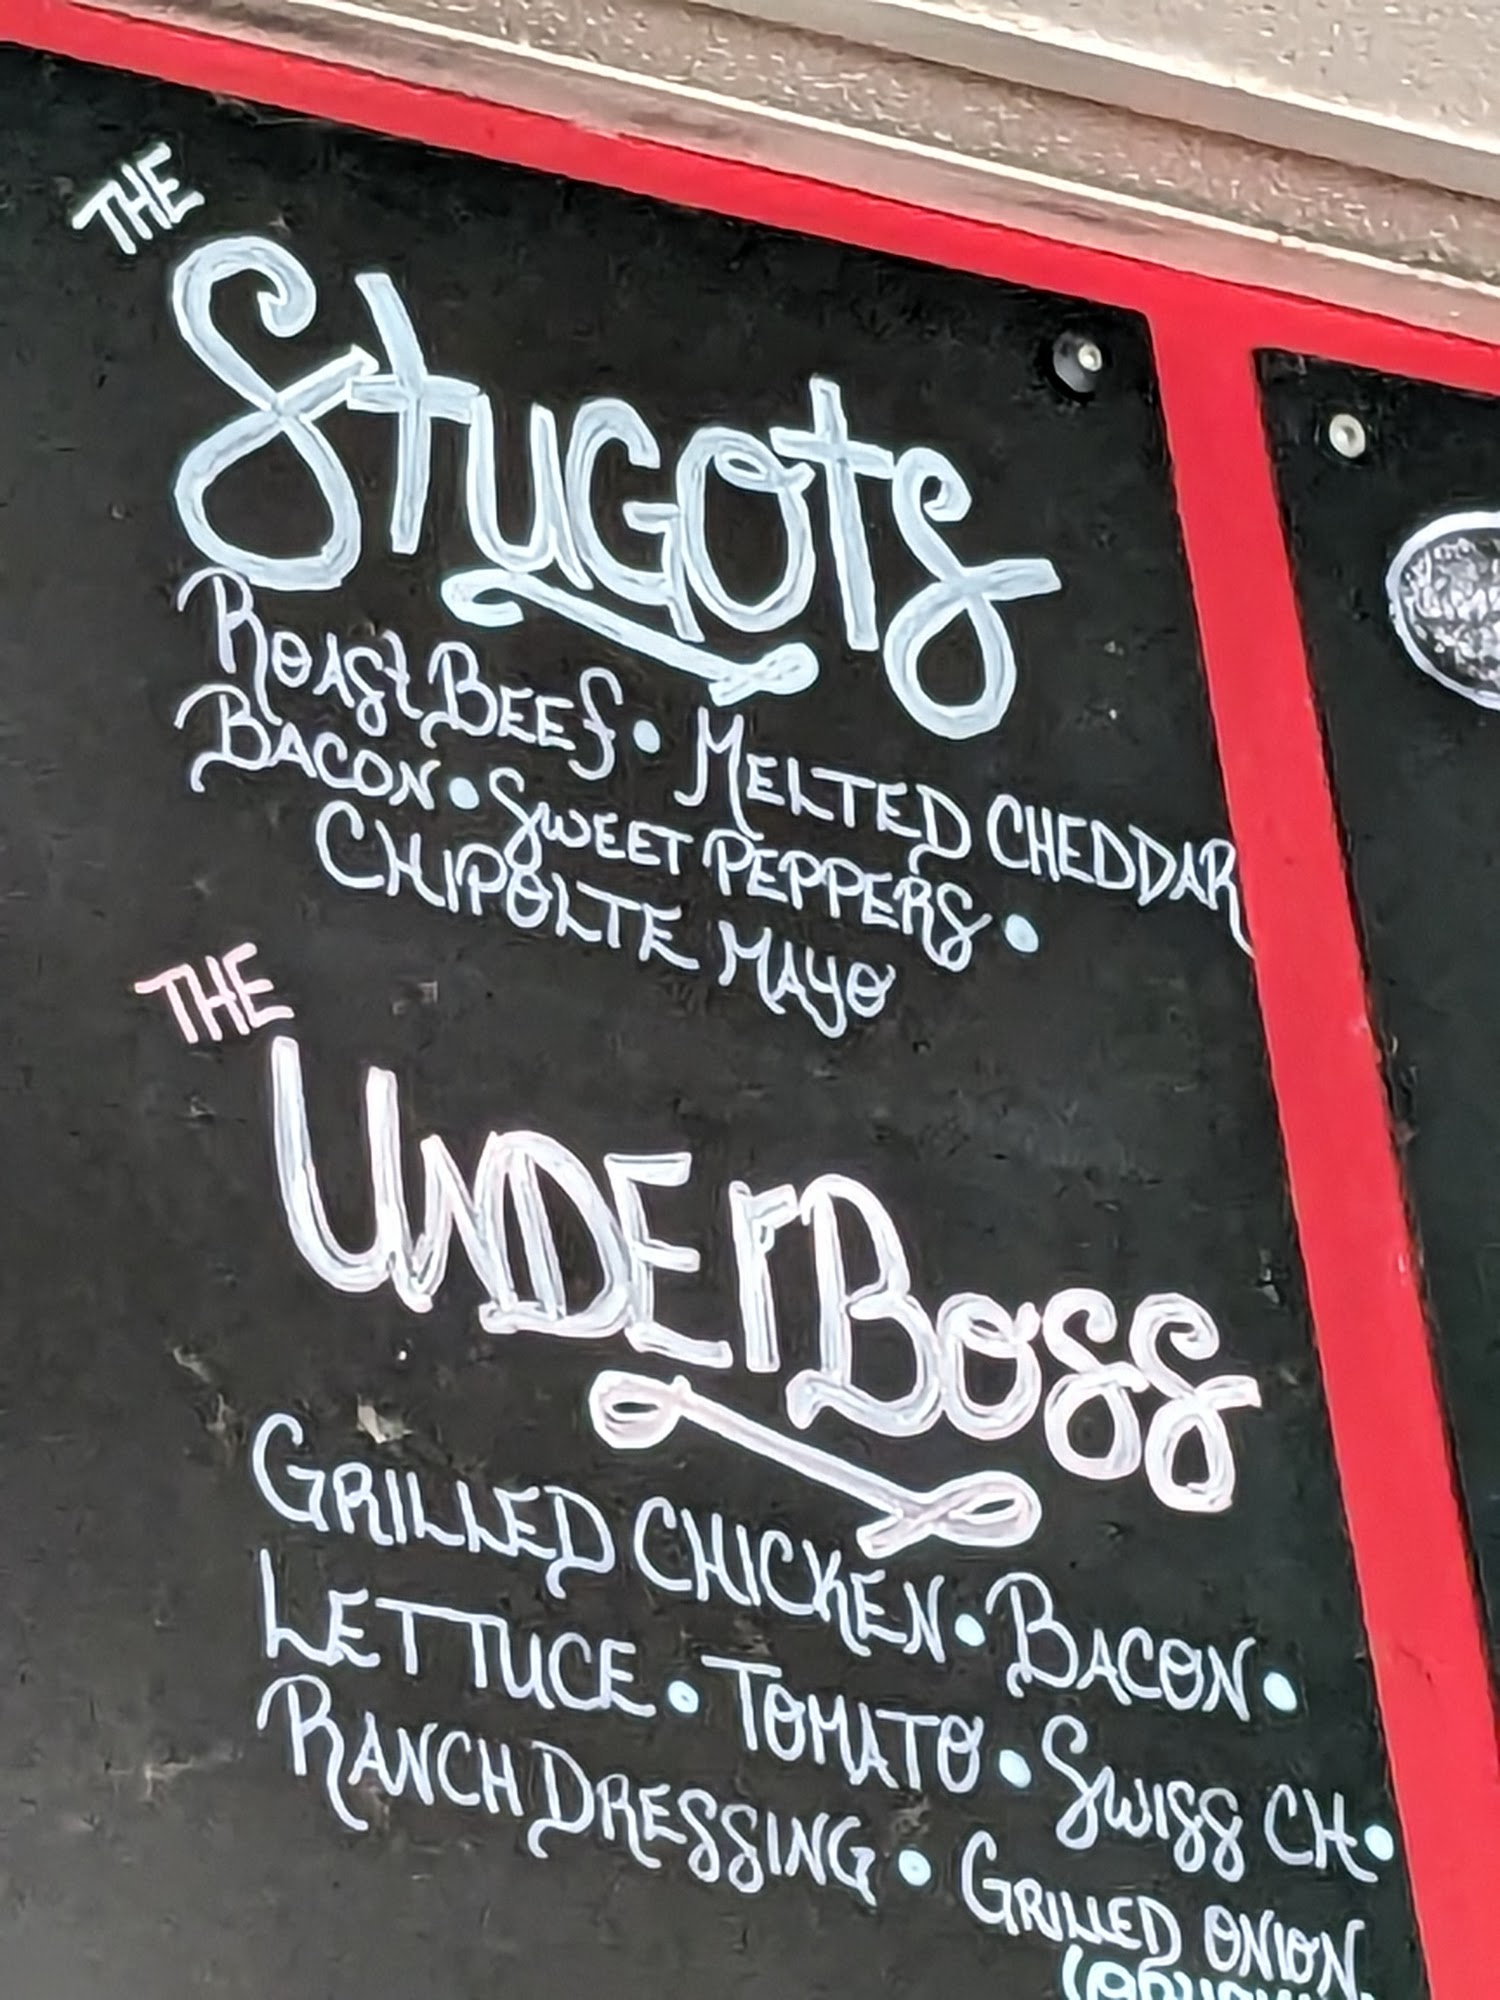 THE
Stugots
ROAST BEEF • MELTED CHEDDAR
BACON • SWEET PEPPERS •
CHIPOLTE MAYO
THE
UNDErBOSS
GRILLED CHICKEN • BACON •
LETTUCE • TOMATO • SWISS CH •
RANCH DRESSING • GRILLED ONION